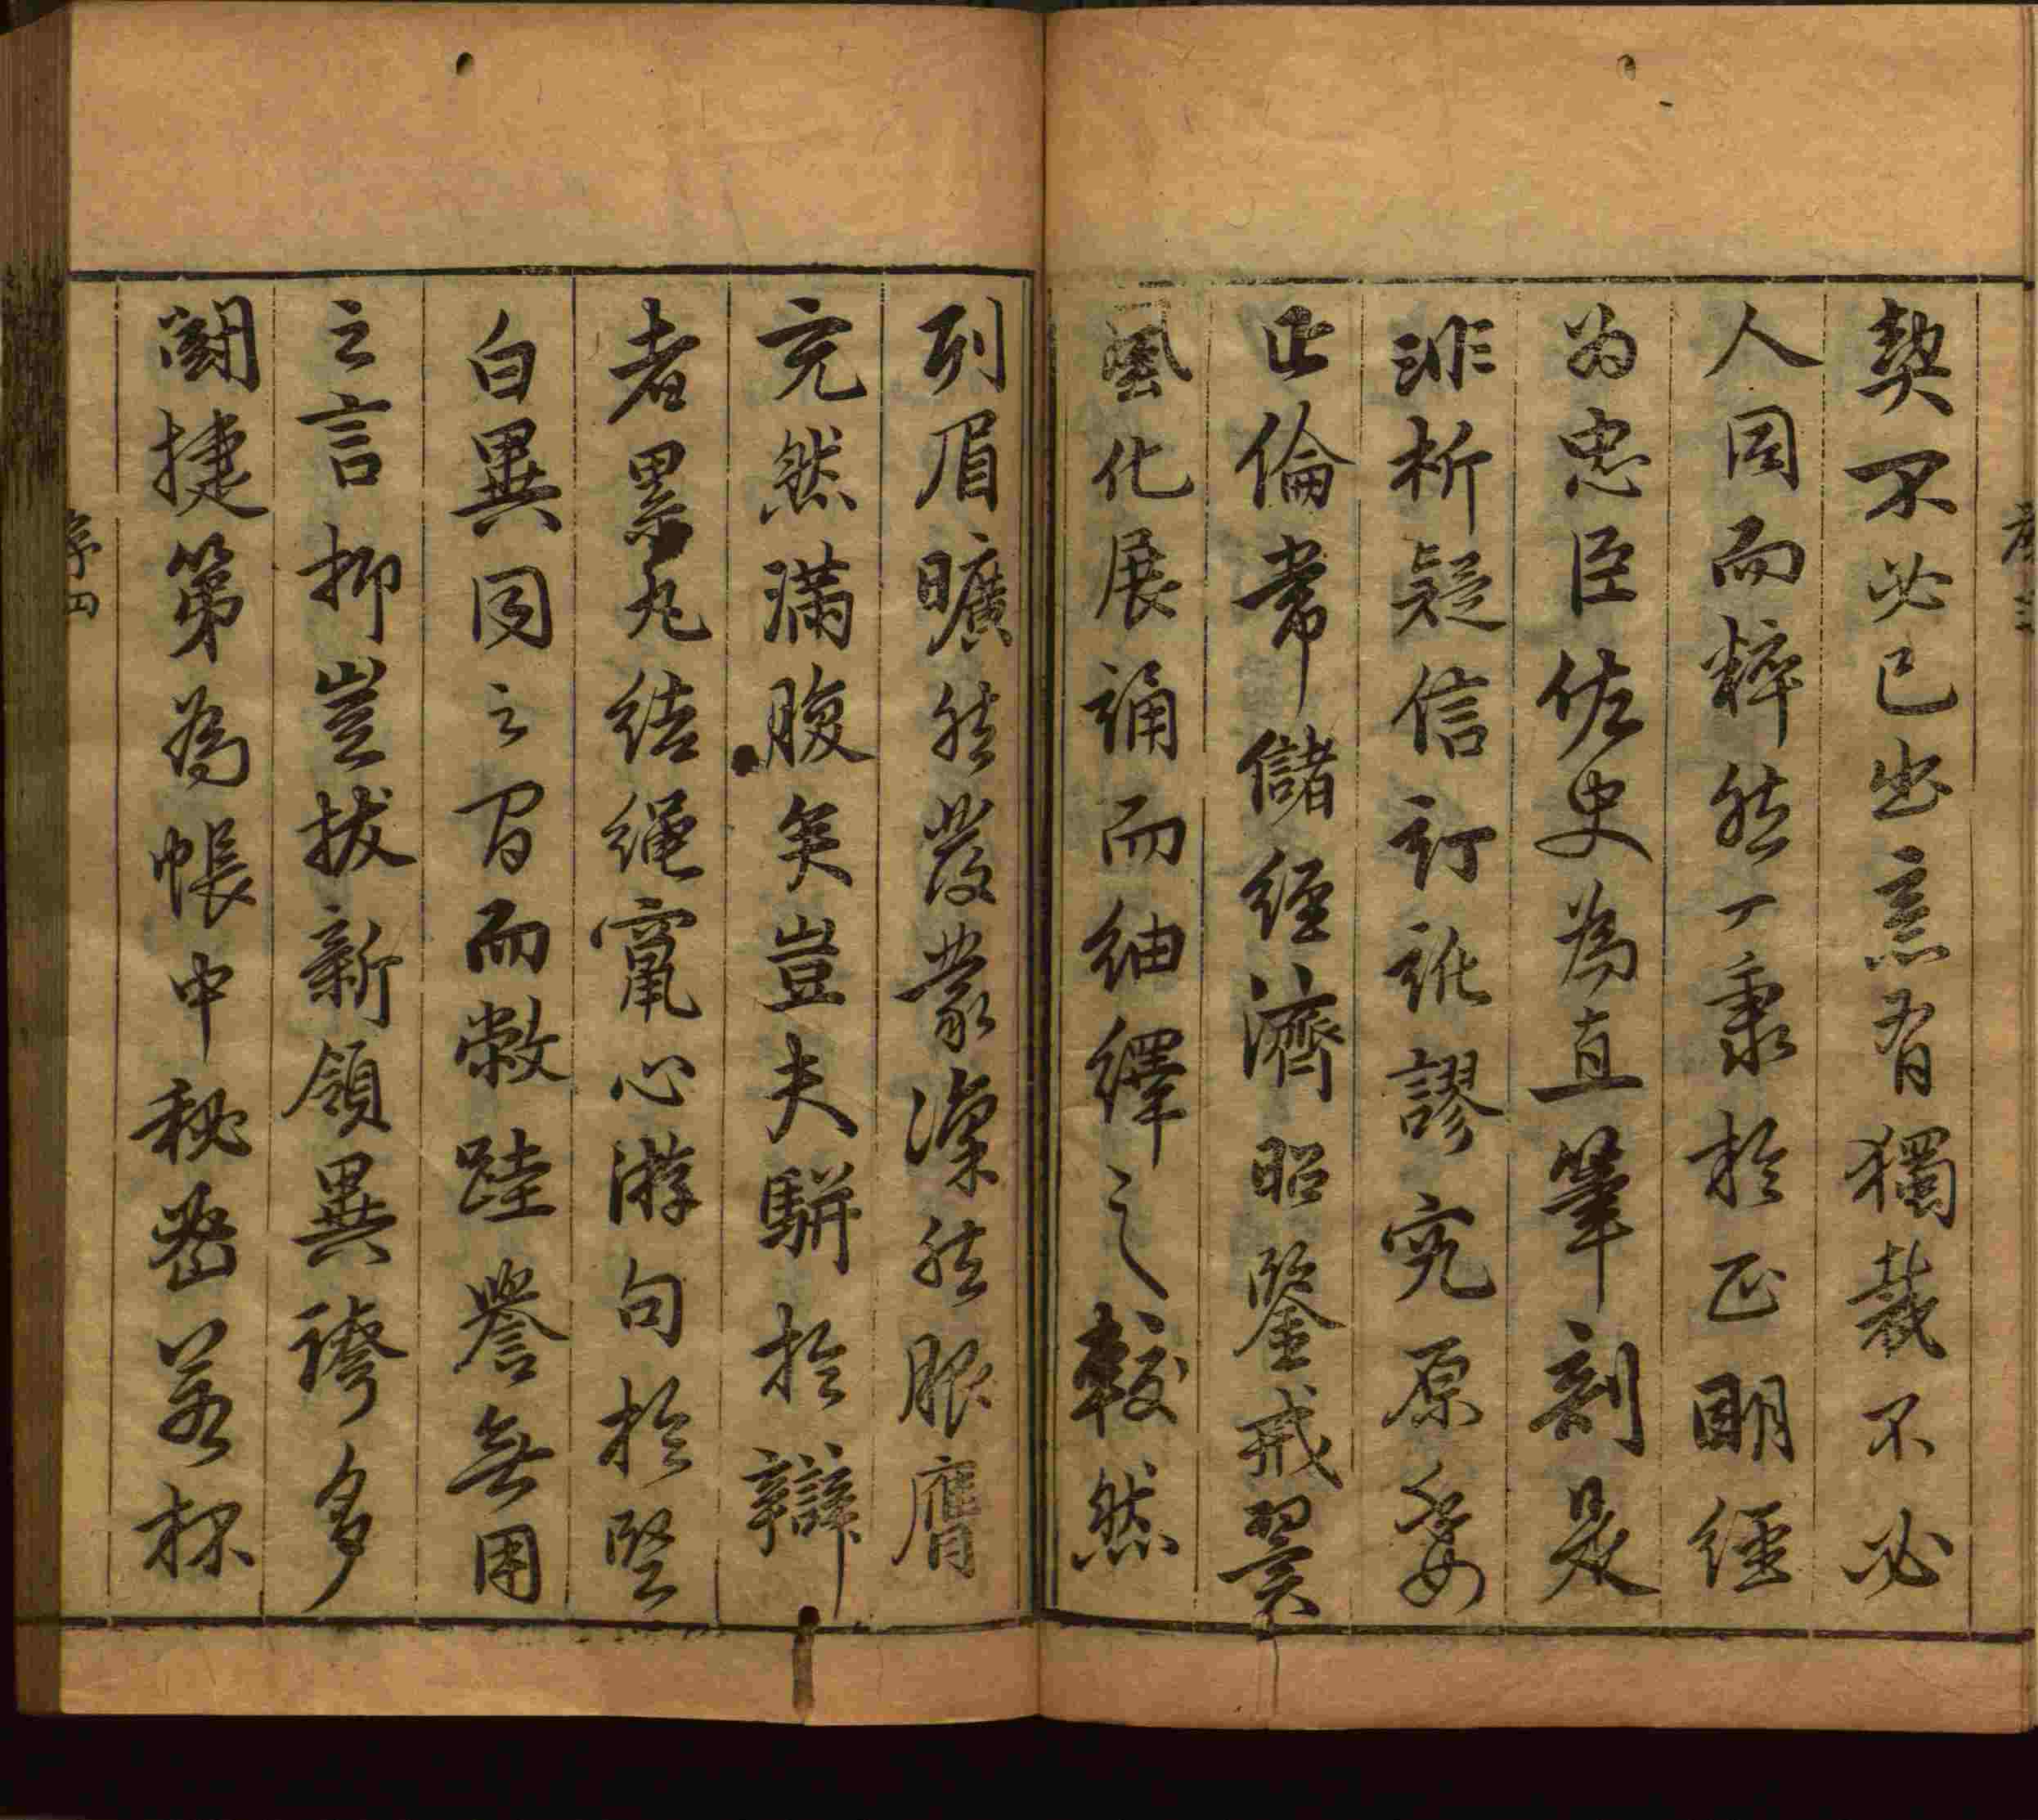 契不必已出意有獨裁不必
人同而粹然一秉於正明經
為忠臣佐史為直筆剖是
非析疑信訂訛謬究原委
正倫常儲經濟昭鑒戒翼
風化展誦而紬繹之較然
列眉曠然發蒙深然服膺
充然滿腹矣豈夫駢於辯
者累丸結繩竄心游句於堅
白異同之間而敝跬譽無用
之言抑豈拔新領異誇多
鬬捷第為帳中秘密若杯
序四